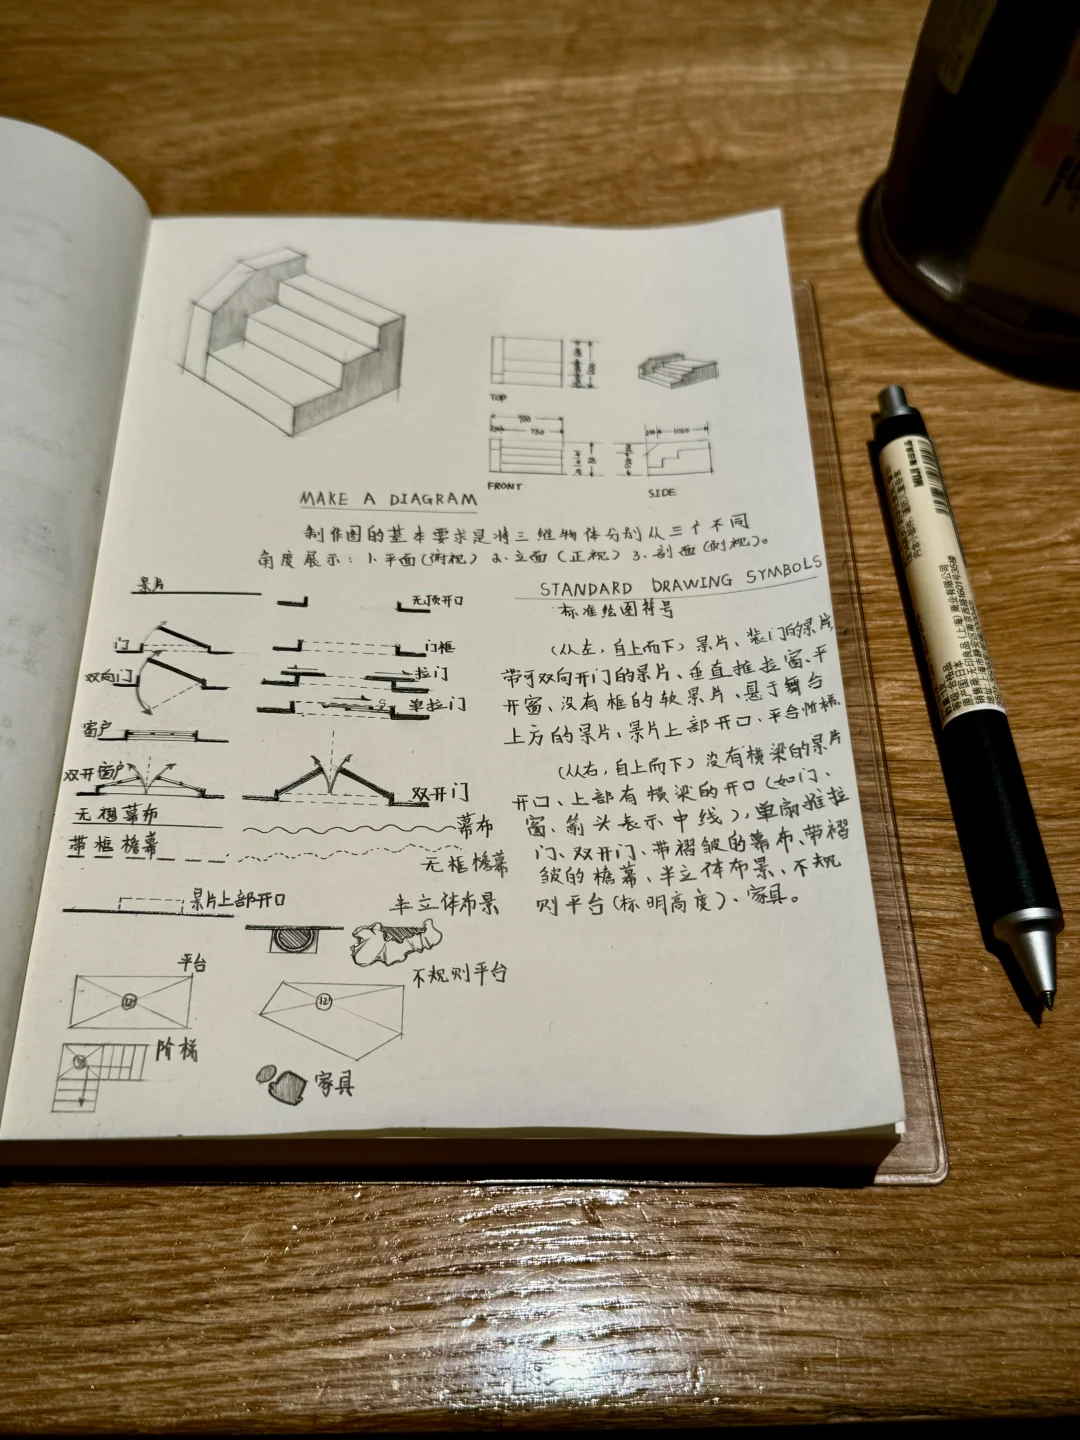 TOP
900
750
1000
FRONT
SIDE
MAKE A DIAGRAM
制作图的基本要求是将三维物体分别从三个不同
角度展示：1.平面(俯视) 2.立面(正视) 3.剖面(侧视)。
STANDARD DRAWING SYMBOLS
标准绘图符号
景片
无顶开口
门
门框
双向门
拉门
单拉门
窗户
双开窗户
双开门
无褶幕布
幕布
带框檐幕
无框檐幕
景片上部开口
半立体布景
平台
不规则平台
12'
12'
阶梯
家具
(从左，自上而下) 景片、装门的景片，
带可双向开门的景片、垂直推拉窗、平
开窗、没有框的软景片、悬于舞台
上方的景片、景片上部开口、平台阶梯。
(从右，自上而下) 没有横梁的景片
开口、上部有横梁的开口(如门、
窗、箭头表示中线)，单扇推拉
门、双开门、带褶皱的幕布、带褶
皱的檐幕、半立体布景、不规
则平台(标明高度)、家具。
MUJI 无印良品
原产国:日本